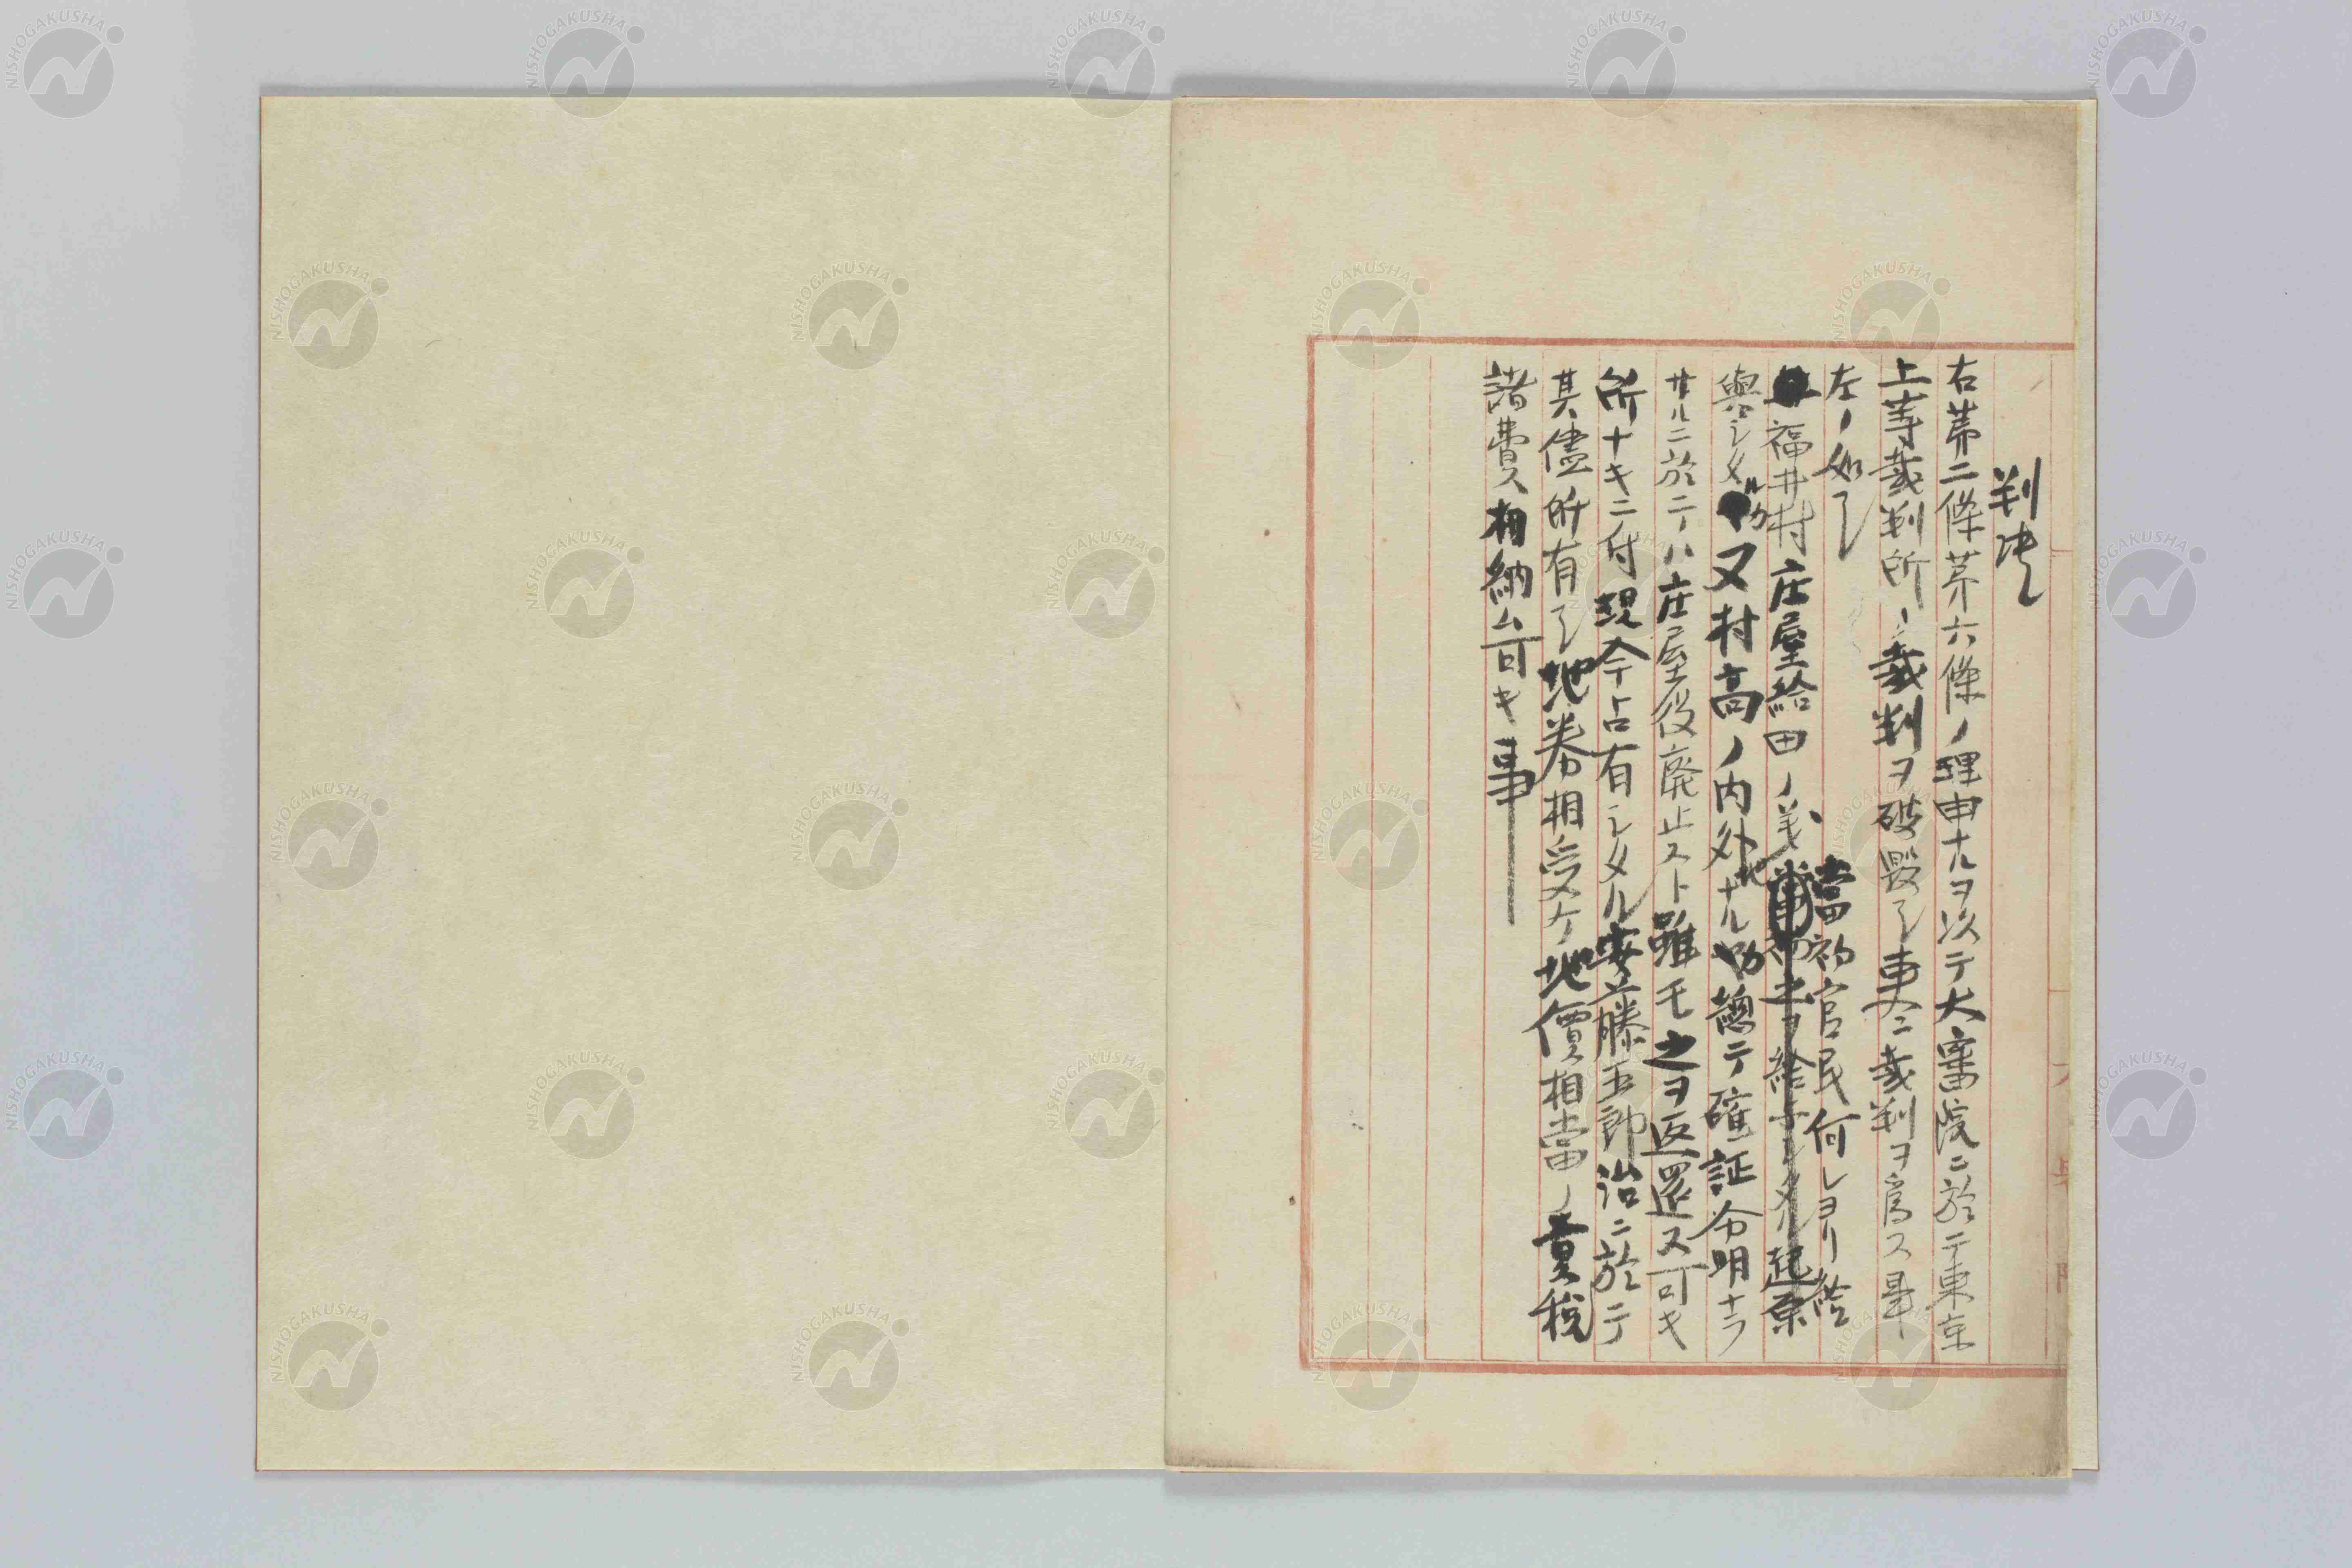 判决
右苐二條苐六條ノ理申ナルヲ以テ大審院ニ於テ東京
上等裁判所ノ裁判ヲ破毀シ更ニ裁判ヲ為ス
左ノ如シ
當初官民何レヨリ給
福井村庄屋給田ノ義
起原
與シタルカ又村高ノ内外地ナル カ 總テ確証分明ナラ
サルニ於テハ庄屋役廃止スト雖モ之ヲ返還ス可キ
所ナキニ付現今占有シタル安藤五郎治ニ於テ
其儘所有シ地券相受ケ地價相當ノ貢税
諸費ヘ相納ム可キ事